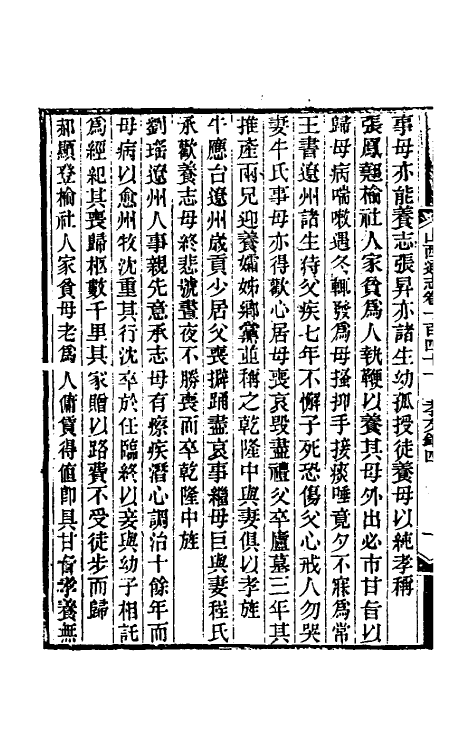 山西通志卷一百四十一　孝友錄四　一
事母亦能養志張昇亦諸生幼孤授徒養母以純孝稱
張鳳翹榆社人家貧為人執鞭以養其母外出必市甘旨以
歸母病喘嗽遇冬輒發為母搔抑手接痰唾竟夕不寐為常
王書遼州諸生侍父疾七年不懈子死恐傷父心戒人勿哭
妻牛氏事母亦得歡心居母喪哀毀盡禮父卒廬墓三年其
推產兩兄迎養孀姊鄉黨並稱之乾隆中與妻俱以孝旌
牛應台遼州歲貢少居父喪擗踊盡哀事繼母巨與妻程氏
承歡養志母終悲號晝夜不勝喪而卒乾隆中旌
劉瑤遼州人事親先意承志母有瘵疾潛心調治十餘年而
母病以愈州牧沈重其行沈卒於任臨終以妾與幼子相託
為經紀其喪歸柩數千里其家贈以路費不受徒步而歸
郝顯登榆社人家貧母老為人傭賃得值即具甘旨孝養無